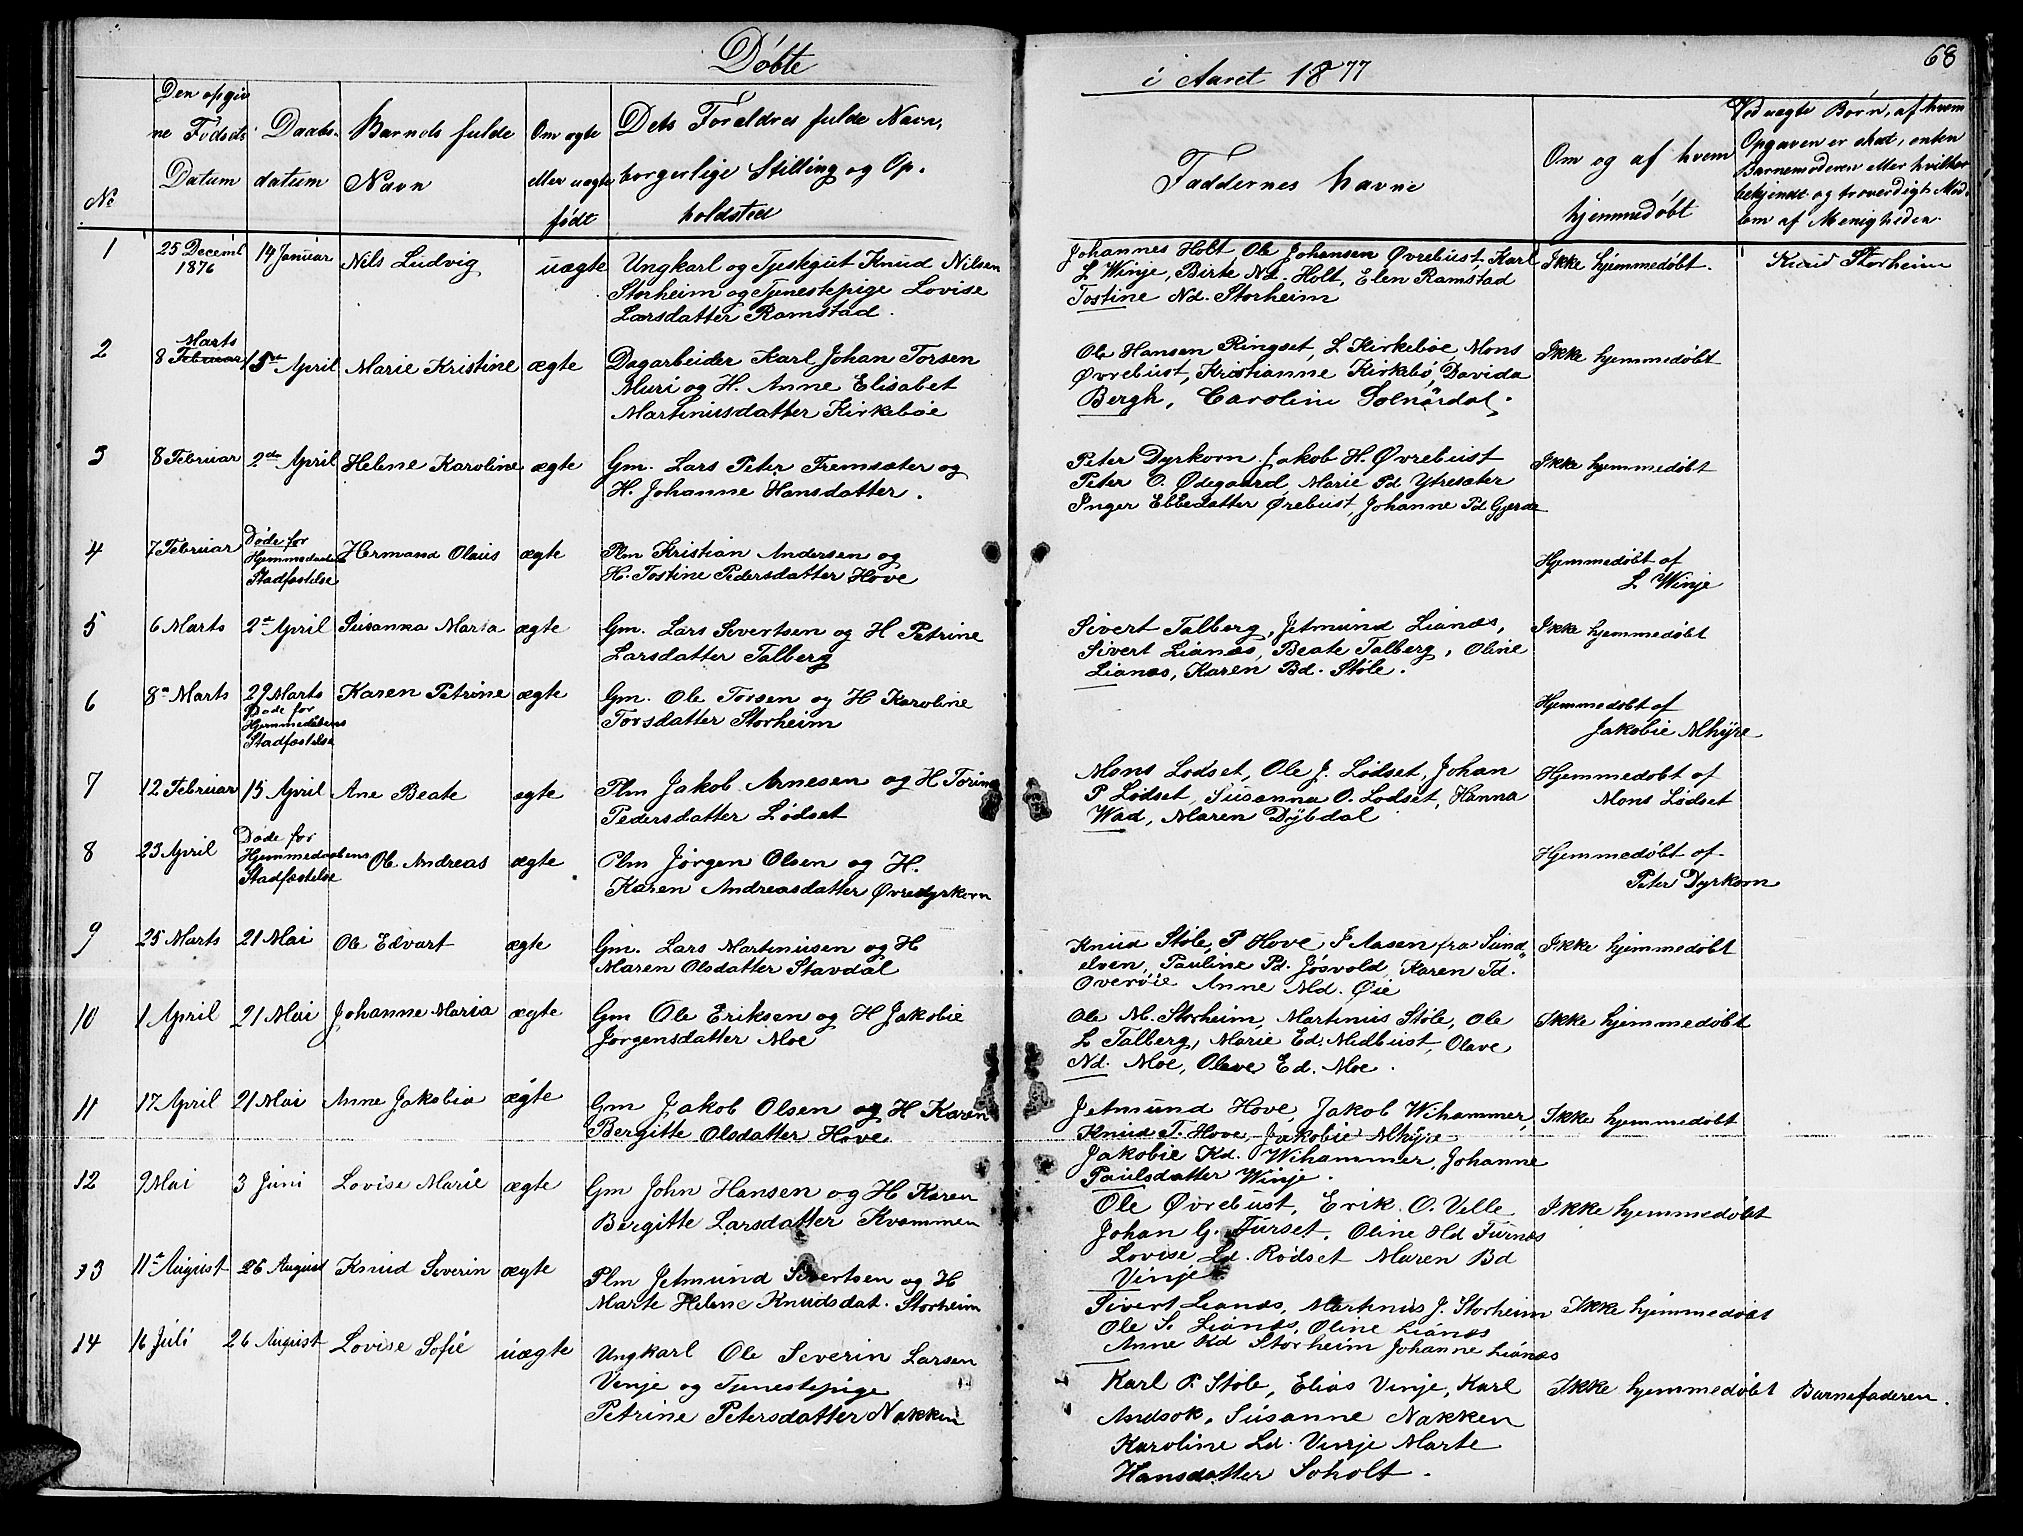 Döbte
i Aaret 1877
68
No
Den opgiv
ne Födsels
Datum
Daabs-
datum
Barnets fulde
Navn
Om ægte
eller uægte
födt
Dets Forældres fulde Navn,
borgerlige Stilling og Op-
holdsted
Faddernes Navne
Om og af hvem
hjemmedöbt
Ved uægte Börn, af hvem
Opgaven er sked, enten
Barnemoderen eller hvilket
bekjendt og troværdigt Med-
lem af Menigheden.
1
25 Decembr
1876
14 Januar
Nils Ludvig
uægte
Ungkarl og Tjeskgut Knud Nilsen
Storheim og Tjenestepige Lovise
Larsdatter Ramstad.
Johannes Holt, Ole Johansen Øvrebust, Karl
L Winje, Birte Nd. Holt, Elen Ramstad
Tostine Nd. Storheim
Ikke hjemmedöbt.
Knud Storheim
2
Marts
8 Februar
15de April
Marie Kristine
ægte
Dagarbeider Karl Johan Torsen
Muri og H. Anne Elisabet
Martinusdatter Kirkeböe
Ole Hansen Ringset, L Kirkeböe, Mons
Øvrebust, Kristianne Kirkebö, Davida
Bergh, Caroline Solnördal.
Ikke hjemmedöbt
3
8 Februar
2de April
Helene Karoline
ægte
Gm. Lars Peter Fremsæter og
H. Johanne Hansdatter.
Peter Dyrkorn, Jakob H. Øvrebust
Peter O. Ødegaard Marie Pd Ytresæter
Inger Ebbedatter Ørebust, Johanne Pd Gjerde
Ikke hjemmedöbt
4
7 Februar
Döde for
Hjemmedaabens
Stadfæstelse
Hermand Olaus
ægte
Plm Kristian Andersen og
H. Tostine Pedersdatter Hove
Hjemmedöbt af
L Winje
5
6 Marts
2de April
Susanna Maria
ægte
Gm. Lars Severtsen og H Petrine
Larsdatter Talberg
Sivert Talberg, Jetmund Lianæs,
Sivert Lianæs, Beate Talberg, Oline
Lianæs, Karen Bd. Stöle.
Ikke hjemmedöbt
6
8de Marts
29 Marts
Döde for
Hjemmedöbens
Stadfæstelse
Karen Petrine
ægte
Gm. Ole Torsen og H Karoline
Torsdatter Storheim
Hjemmedöbt af
Jakobie Mhyre
7
12 Februar
15 April
Ane Beate
ægte
Plm Jakob Arnesen og H Torine
Pedersdatter Lödset
Mons Lödset, Ole J. Lödset, Johan
P Lödset, Susanna O. Lodset, Hanna
Wad, Maren Dybdal
Hjemmedöbt af
Mons Lödset
8
23 April
Döde for
Hjemmedaabens
Stadfæstelse
Ole Andreas
ægte
Plm Jörgen Olsen og H.
Karen Andreasdatter Øvredyrkorn
Hjemmedöbt af
Peter Dyrkorn
9
25 Marts
21 Mai
Ole Edvart
ægte
Gm. Lars Martinusen og H
Maren Olsdatter Stavdal
Knud Stöle, P Hove, J Aasen fra Sund
elven, Pauline Pd. Jösvold, Karen Td.
Overöie Anne Md. Øie
Ikke hjemmedöbt
10
1 April
21 Mai
Johanne Maria
ægte
Gm Ole Eriksen og H Jakobie
Jorgensdatter Moe
Ole M. Storheim, Martinus Stöle, Ole
L Talberg, Marie Ed. Midbust, Olave
Nd. Moe, Olave Ed. Moe.
Ikke hjemmedöbt
11
17 April
21 Mai
Anne Jakobia
ægte
Gm Jakob Olsen og H Karen
Bergitte Olsdatter Hove
Jetmund Hove, Jakob Wihammer,
Knud T. Hove, Jakobie Mhyre
Jakobie Kd. Wihammer, Johanne
Paulsdatter Winje.
Ikke hjemmedöbt
12
9 Mai
3 Juni
Lovise Marie
ægte
Gm John Hansen og H Karen
Bergitte Larsdatter Kvammen
Ole Øvrebust, Erik O. Velle
Johan G. Furset, Oline Hd Furnæs
Lovise Ld. Rödset Maren Bd
Vinje
Ikke hjemmedöbt
13
11te August
26 August
Knud Severin
ægte
Plm Jetmund Sivertsen og H
Marte Helene Knudsdat. Storheim
Sivert Lianæs, Martinus J. Storheim
Ole S. Lianæs, Oline Lianæs
Anne Kd Storheim Johanne Lianæs
Ikke hjemmedöbt
14
16 Juli
26 August
Lovise Sofie
uægte
Ungkarl Ole Severin Larsen
Vinje og Tjenestepige
Petrine Petersdatter Nakken
Karl P. Stöle, Elias Vinje, Karl
Andsok, Susanne Nakken
Karoline Ld. Vinje Marte
Hansdatter Soholt.
Ikke hjemmedöbt
Barnefaderen.